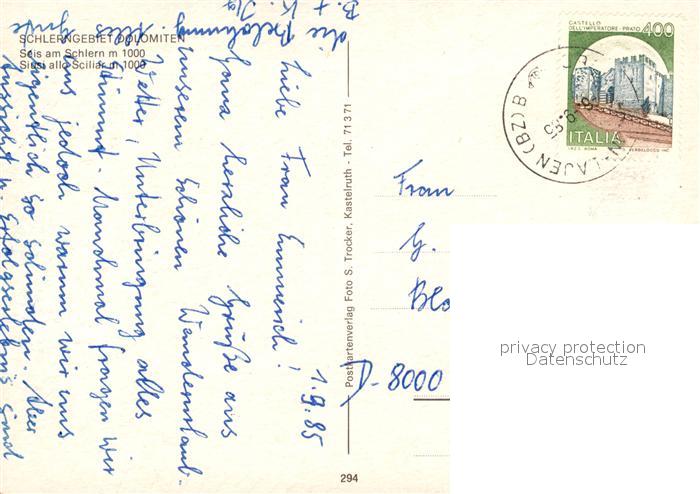 SCHLERNGEBIET DOLOMITEN
Seis am Schlern m 1000
Siusi allo Sciliar m 1000
1.9.85
Liebe Frau Emmerich!
Ganz herzliche Grüße aus
unserem schönen Wanderurlaub.
Wetter, Unterbringung alles
stimmt. Manchmal fragen wir
uns jedoch warum wir uns
eigentlich so schinden. Aber
Aussicht u. Erfolgserlebnis sind
die Belohnung
B. + K.
Postkartenverlag Foto S. Trocker, Kastelruth - Tel. 71371
294
CASTELLO
DELL'IMPERATORE - PRATO
400
ITALIA
LAJEN (BZ) B
Frau
G.
D-8000
privacy protection
Datenschutz